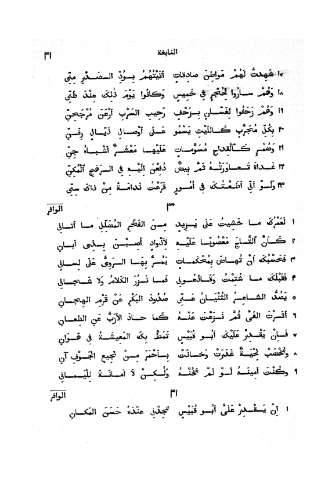 ٣١ النابغة
١٧ شهدت لهم مواطن صادقات أتيتهم بود الصدر مني
١٨ وهم ساروا لحجر في خميس وكانوا يوم ذلك عند ظني
١٩ وهم زحفوا لغسان بزحف رحيب السرب أرعن مرجحن
٢٠ بكل مجرب كالليث يسمو على أوصال ذيال رفن
٢١ وضمر كالقداح مسومات عليها معشر أشباه جن
٢٢ غداة تعاورته ثم بيض دفعن إليه في الرهج المكن
٢٣ ولو أني أطعتك في أمور قرعت ندامة من ذاك سني
٣٠ الوافر
١ لعمرك ما خشيت على يزيد من الفخر المضلل ما أتاني
٢ كأن التاج معصوبا عليه لأذواد أصبن بذي أبان
٣ فحسبك أن تهاض بمحكمات يمر بها الروي على لساني
٤ فقبلك ما شتمت وقاذعوني فما نزر الكلام ولا شجاني
٥ يصد الشاعر الثنيان عني صدود البكر عن قرم الهجان
٦ أثرت الغي ثم نزعت عنه كما حاد الأزب عن الطعان
٧ فإن يقدر عليك أبو قبيس تمط بك المعيشة في هوان
٨ وتخضب لحية غدرت وخانت بأحمر من نجيع الجوف آن
٩ وكنت أمينه لو لم تخنه ولكن لا أمانة لليماني
٣١ الوافر
١ إن يقدر علي أبو قبيس تجدني عنده حسن المكان